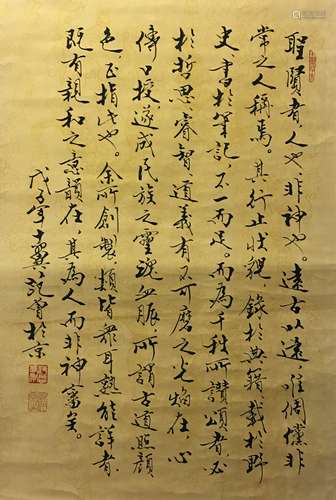 聖賢者，人也，非神也。遠古以遠，唯倜儻非
常之人稱焉。其行止狀貌，錄於典籍，載於野
史，書於筆記，不一而足。而為千秋所讚頌者，必
於哲思睿智、道義有不可磨之光焰在，心
傳口授，遂成民族之靈魂血脈，所謂古道照顏
色，正指此也。余所創製，類皆眾耳熟能詳者，
既有親和之意韻在，其為人而非神審矣。
戊子 十翼 范曾於京